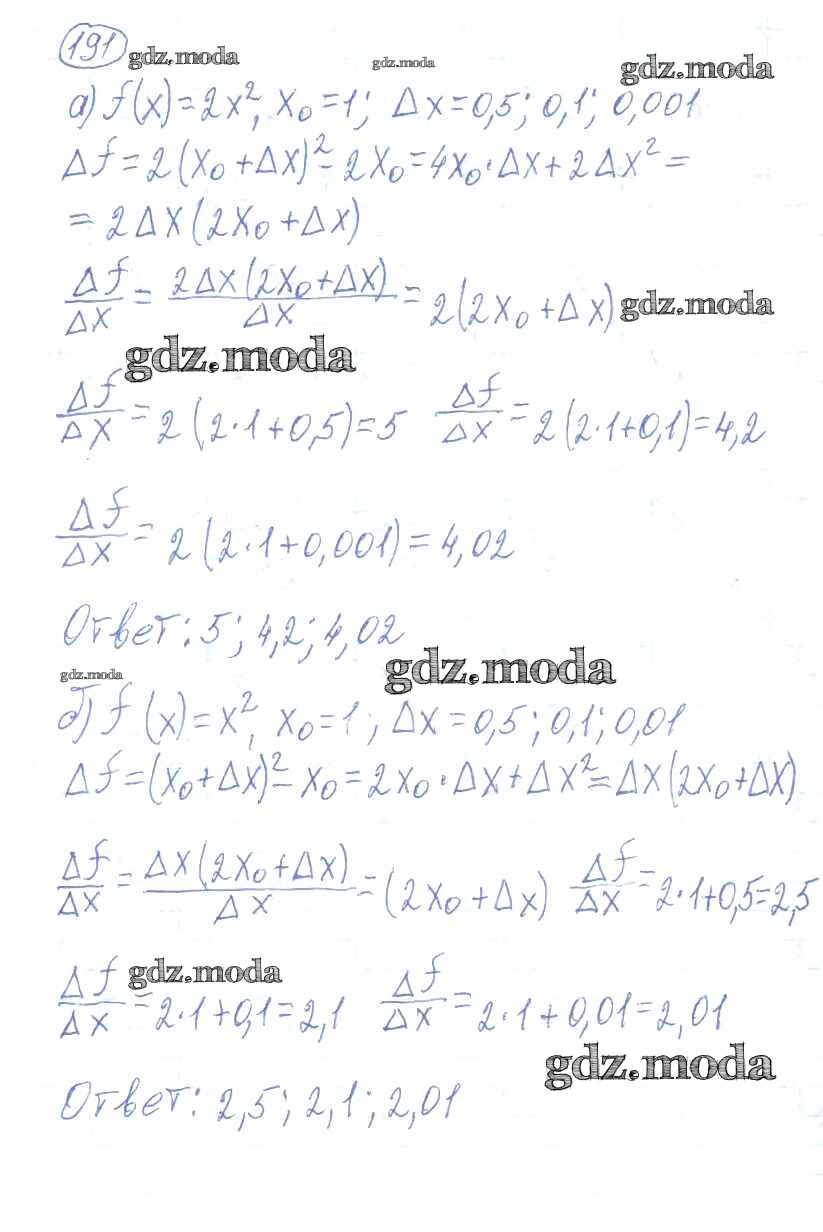 191 gdz.moda gdz.moda gdz.moda
а) f(x)=2x², x₀=1; Δx=0,5; 0,1; 0,001
Δf=2(x₀+Δx)²-2x₀=4x₀·Δx+2Δx²=
=2Δx(2x₀+Δx)
Δf/Δx=2Δx(2x₀+Δx)/Δx=2(2x₀+Δx) gdz.moda
gdz.moda
Δf/Δx=2(2·1+0,5)=5 Δf/Δx=2(2·1+0,1)=4,2
Δf/Δx=2(2·1+0,001)=4,02
Ответ: 5; 4,2; 4,02
gdz.moda gdz.moda
б) f(x)=x², x₀=1; Δx=0,5; 0,1; 0,01
Δf=(x₀+Δx)²-x₀=2x₀·Δx+Δx²=Δx(2x₀+Δx)
Δf/Δx=Δx(2x₀+Δx)/Δx=(2x₀+Δx) Δf/Δx=2·1+0,5=2,5
gdz.moda
Δf/Δx=2·1+0,1=2,1 Δf/Δx=2·1+0,01=2,01
gdz.moda
Ответ: 2,5; 2,1; 2,01